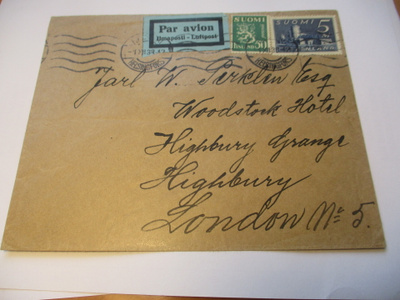 Par avion
Ilmaposti - Luftpost
SUOMI
50
SUOMI 5
Jarl W. Perklén Esq
Woodstock Hotel
Highbury Grange
Highbury
London Nº 5.